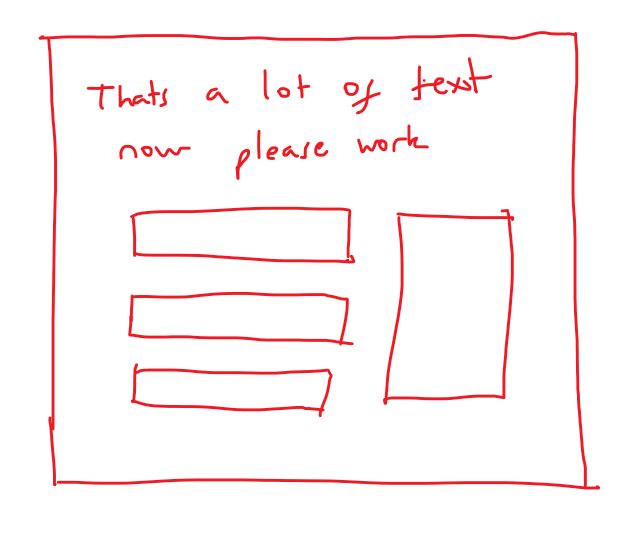 Thats a lot of text
now please work